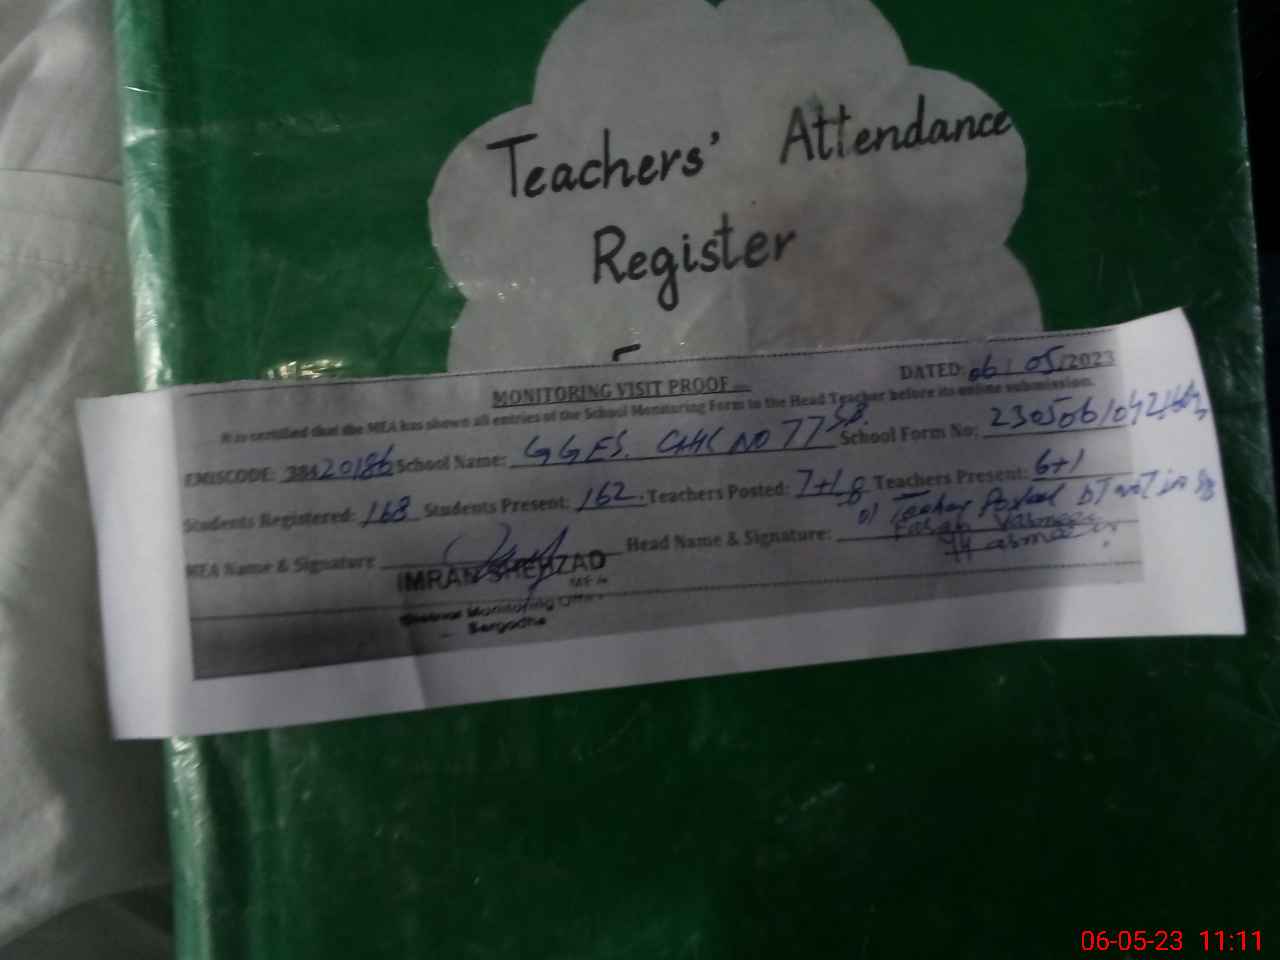 Teachers' Attendance
Register
DATED: 06/05/2023
MONITORING VISIT PROOF
It is certified that the MEA has shown all entries of the School Monitoring Form to the Head Teacher before its online submission.
EMISCODE: 38420186 School Name: GGES. CHK NO 77 SB. School Form No: 2305061042
Students Registered: 168 Students Present: 162. Teachers Posted: 7+1=8 Teachers Present: 6+1
01 Teacher Posted
MEA Name & Signature Head Name & Signature:
IMRAN SHEHZAD
MEA
District Monitoring Office
Sargodha
06-05-23 11:11